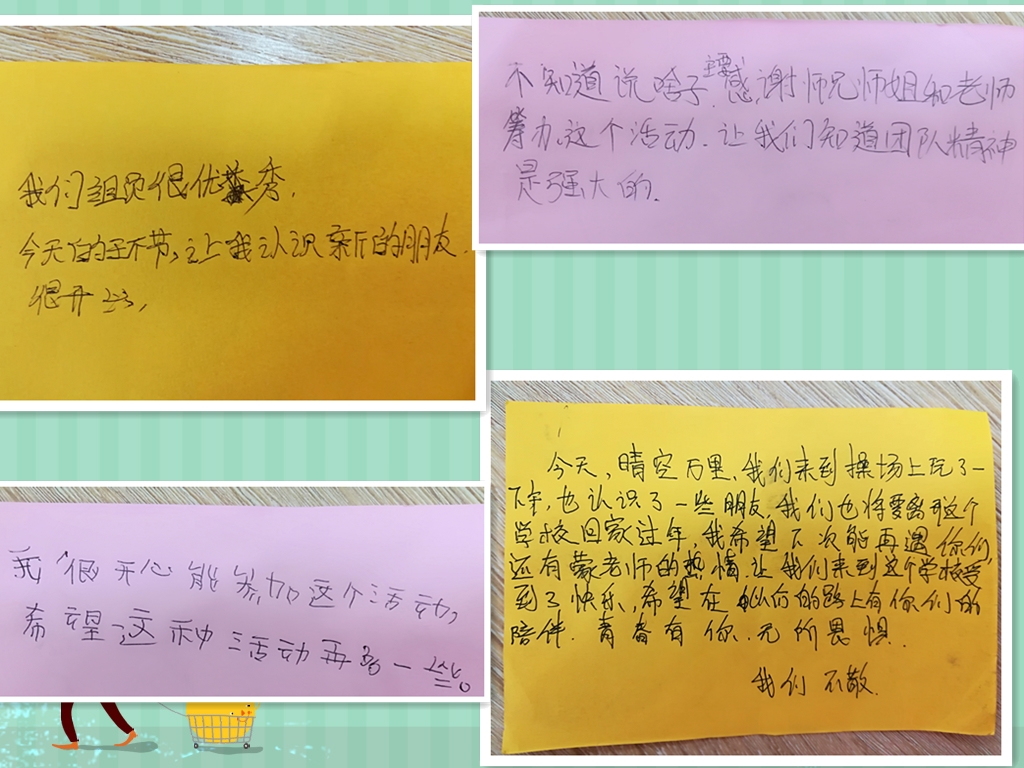 我们组员很优秀.
今天的环节,让我认识新的朋友.
很开心,
不知道说啥子,主要感谢师兄师姐和老师
筹办这个活动.让我们知道团队精神
是强大的.
我很开心能参加这个活动,
希望这种活动再多一些。
今天,晴空万里,我们来到操场上玩了一
下午,也认识了一些朋友,我们也将要离开这个
学校回家过年,我希望下次能再遇你们,
还有蒙老师的热情.让我们来到这个学校受
到了快乐,希望在的路上有你们的
陪伴.青春有你.无所畏惧.
我们 不散.